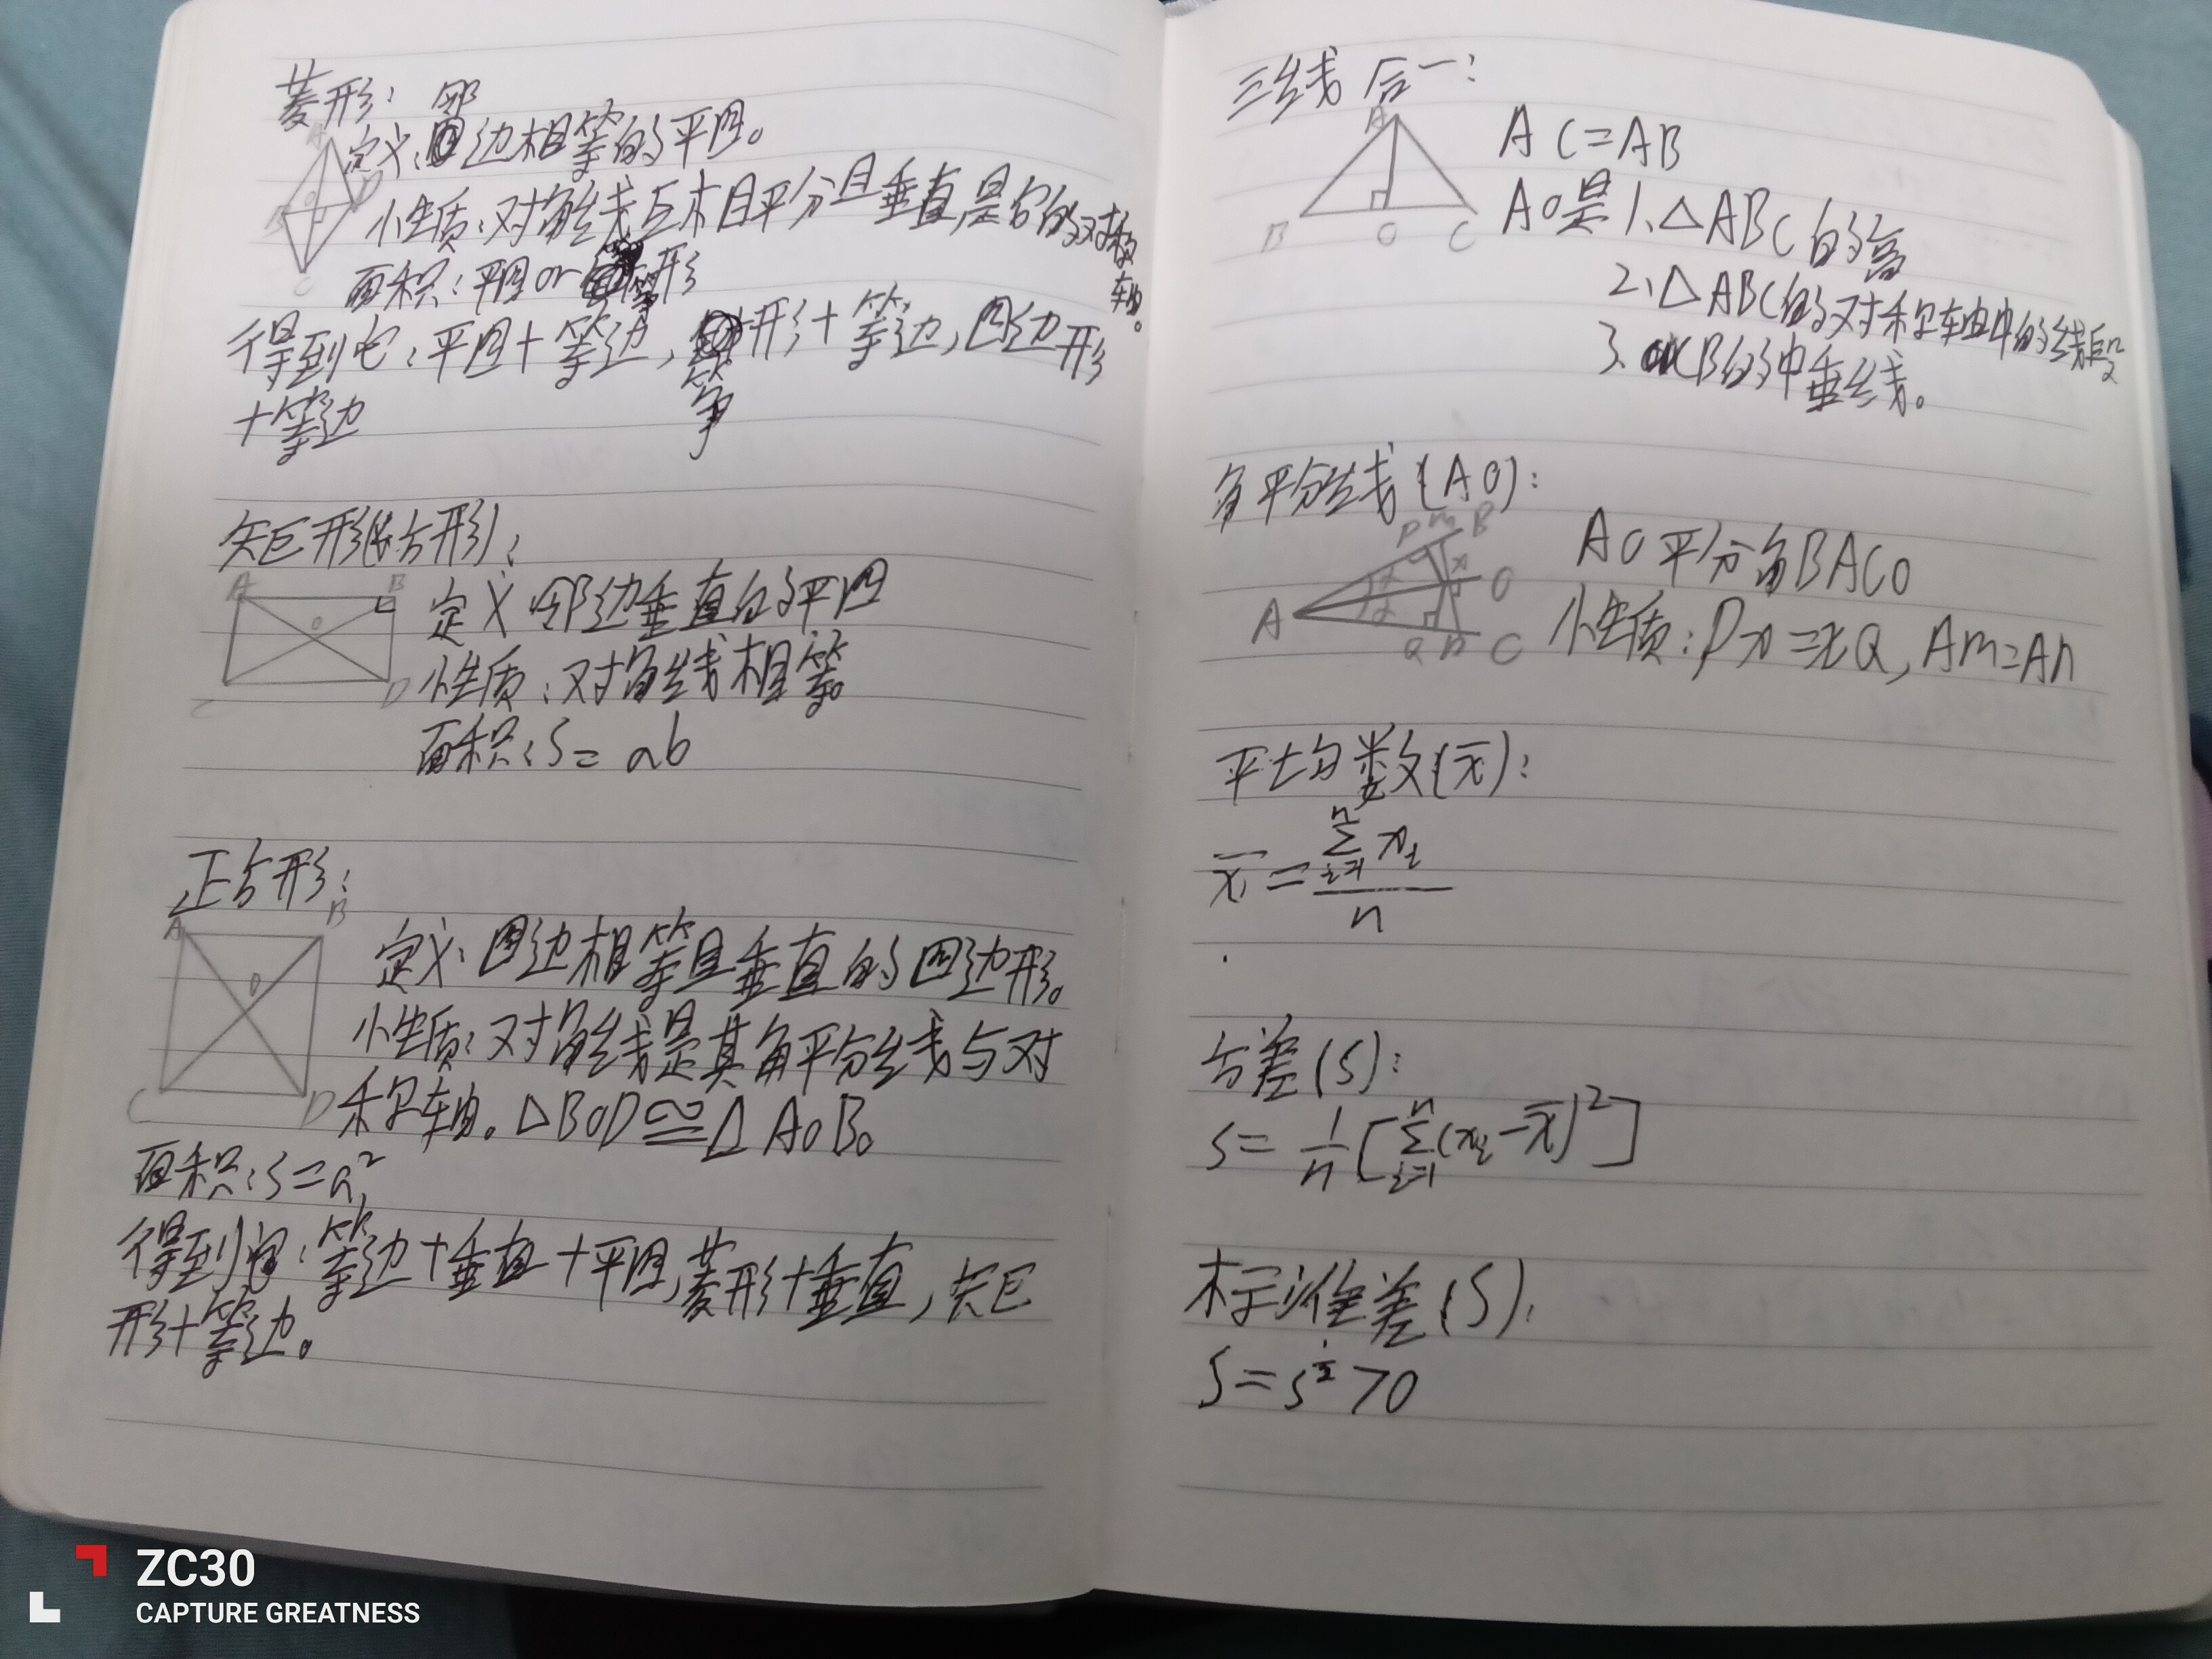 菱形:
邻
A
定义:边相等的平四。
B
D
O
性质:对角线互相平分且垂直,是它的对称
轴。
C
面积:平四or筝形
得到它:平四+等边,筝形+等边,四边形
+等边
矩形(长方形):
A
B
O
C
D
定义:邻边垂直的平四
性质:对角线相等。
面积:S=ab
正方形:
A
B
O
C
D
定义:四边相等且垂直的四边形。
性质:对角线是其角平分线与对
称轴。△BOD≌△AOB。
面积:S=a²
得到它:等边+垂直+平四,菱形+垂直,矩
形+等边。
三线合一:
A
B
O
C
AC=AB
AO是1、△ABC的高
2、△ABC的对称轴中的线段
3、CB的中垂线。
角平分线(AO):
P m B
x
α
O
A
α
Q n C
AO平分角BAC。
性质:Px=xQ,Am=An
平均数(x̄):
x̄=
n
∑ xᵢ
i=1
n
方差(S):
S=1/n[∑ⁿᵢ₌₁(xᵢ-x̄)²]
标准差(S):
S=S^½>0
ZC30
CAPTURE GREATNESS